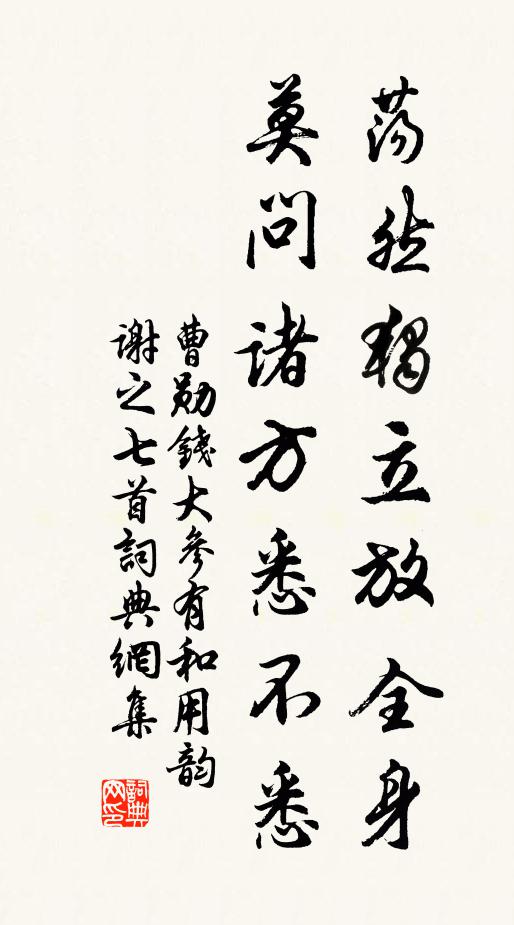 荡然独立放全身
莫问诸方悉不悉
曹勋钱大参有和用韵
谢之七首词典网集
詞典
网印